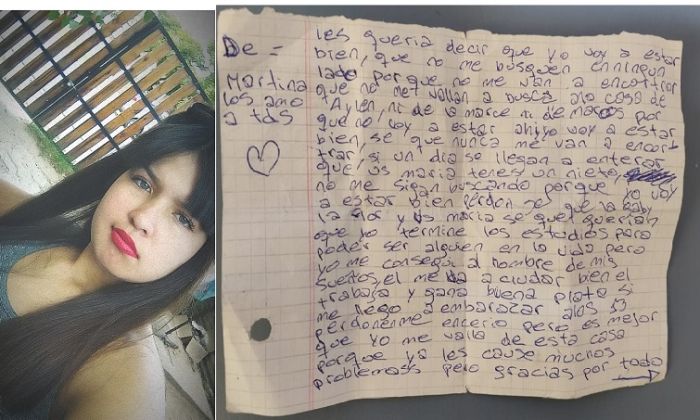 De =
Martina
los amo
a tds
les queria decir que yo voy a estar
bien, que no me busquen enningun
lado porque no me van a encontrar
que no me vallan a busca ala casa de
Aylen, ni de la marce ni de marcos por
que no voy a estar ahi yo voy a estar
bien, se que nunca me van a encon
trar, si un dia se llegan a enterar
que vs maria tenes un nieto,
no me sigan buscando porque yo voy
a estar bien perdon se que la
la flor y vs maria se que querian
que yo termine los estudios para
poder ser alguien en la vida pero
yo me consegui al hombre de mis
sueños, el me va a ciudar bien el
trabaja y gana buena plata si
me llego a embarazar alos 13
perdonenme encerio pero es mejor
que yo me valla de esta casa
porque ya les cause muchos
problemass pero gracias por todo